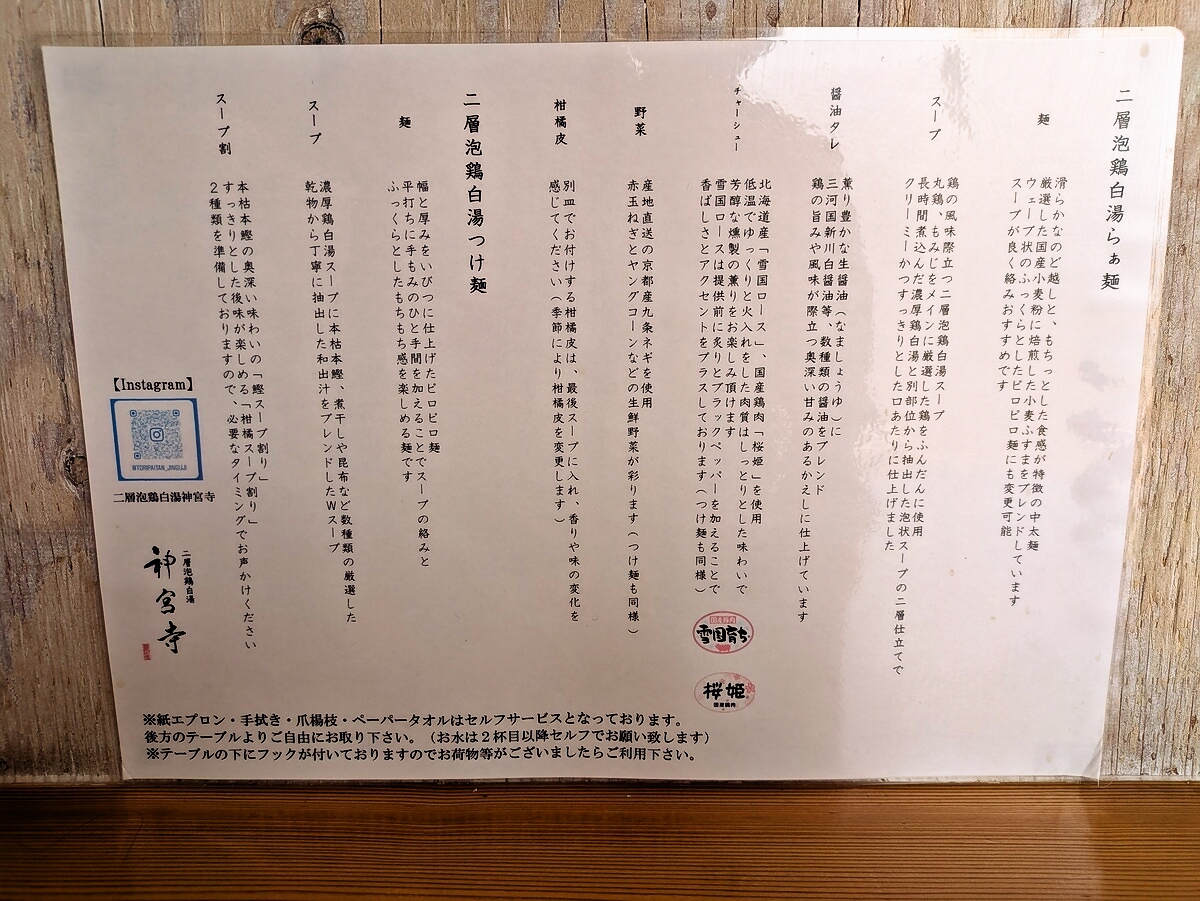 二層泡鶏白湯らぁ麺
麺
滑らかなのど越しと、もちっとした食感が特徴の中太麺
厳選した国産小麦粉に焙煎した小麦ふすまをブレンドしています
ウェーブ状のふっくらとしたピロピロ麺にも変更可能
スープが良く絡みおすすめです
スープ
鶏の風味際立つ二層泡鶏白湯スープ
丸鶏、もみじをメインに厳選した鶏をふんだんに使用
長時間煮込んだ濃厚鶏白湯と別部位から抽出した泡状スープの二層仕立てで
クリーミーかつすっきりとした口あたりに仕上げました
醤油タレ
薫り豊かな生醤油（なましょうゆ）に
三河国新川白醤油等、数種類の醤油をブレンド
鶏の旨みや風味が際立つ奥深い甘みのあるかえしに仕上げています
チャーシュー
北海道産「雪国ロース」、国産鶏肉「桜姫」を使用
低温でゆっくりと火入れをした肉質はしっとりとした味わいで
芳醇な燻製の薫りをお楽しみ頂けます
雪国ロースは提供前に炙りとブラックペッパーを加えることで
香ばしさとアクセントをプラスしております（つけ麺も同様）
国産豚肉
雪国育ち
桜姫
国産鶏肉
野菜
産地直送の京都産九条ネギを使用
赤玉ねぎとヤングコーンなどの生鮮野菜が彩ります（つけ麺も同様）
柑橘皮
別皿でお付けする柑橘皮は、最後スープに入れ、香りや味の変化を
感じてください（季節により柑橘皮を変更します）
二層泡鶏白湯つけ麺
麺
幅と厚みをいびつに仕上げたピロピロ麺
平打ちに手もみのひと手間を加えることでスープの絡みと
ふっくらとしたもちもち感を楽しめる麺です
スープ
濃厚鶏白湯スープに本枯本鰹、煮干しや昆布など数種類の厳選した
乾物から丁寧に抽出した和出汁をブレンドしたWスープ
スープ割
本枯本鰹の奥深い味わいの「鰹スープ割り」
すっきりとした後味が楽しめる「柑橘スープ割り」
2種類を準備しておりますので、必要なタイミングでお声かけください
【Instagram】
@TORIPAITAN_JINGUJI
二層泡鶏白湯神宮寺
二層泡鶏白湯
神宮寺
※紙エプロン・手拭き・爪楊枝・ペーパータオルはセルフサービスとなっております。
後方のテーブルよりご自由にお取り下さい。（お水は２杯目以降セルフでお願い致します）
※テーブルの下にフックが付いておりますのでお荷物等がございましたらご利用下さい。